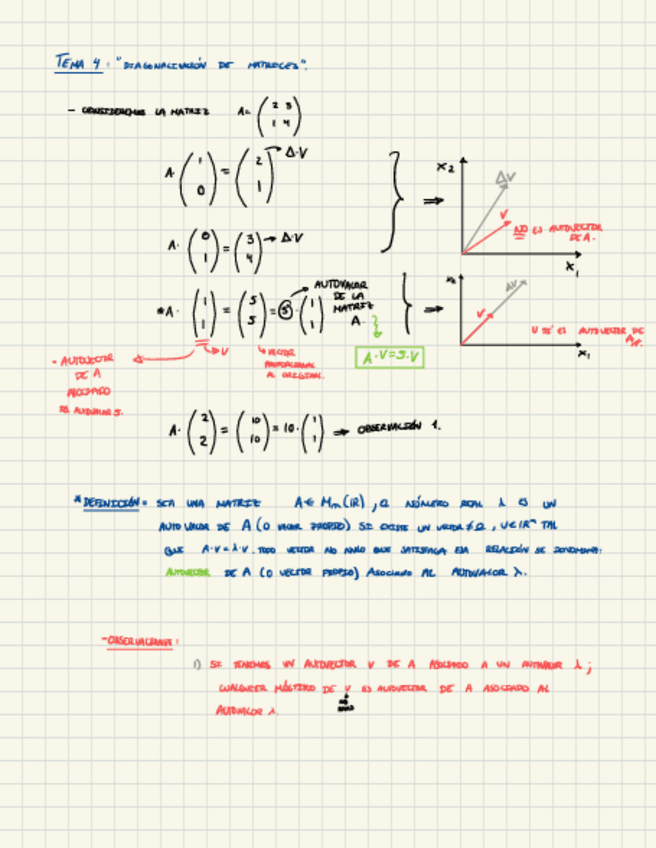 TEMA 4: "DIAGONALIZACIÓN DE MATRICES".
- CONSIDEREMOS LA MATRIZ A= (2 3
1 4)
A·(1 0) = (2 1) → Δ·V
A·(0 1) = (3 4) → Δ·V
X2
ΔV
V
NO ES AUTOVECTOR
DE A.
X1
*A·(1 1) = (5 5) = 5·(1 1)
AUTOVALOR
DE LA
MATRIZ
A.
A·V=5·V
→ V
VECTOR
PROPORCIONAL
AL ORIGINAL.
• AUTOVECTOR
DE A
ASOCIADO
AUTOVALOR 5.
X2
ΔV
V
V SÍ ES AUTOVECTOR DE
X1
A·(2 2) = (10 10) = 10·(1 1) ⇒ OBSERVACIÓN 1.
*DEFINICIÓN= SEA UNA MATRIZ A∈ Mn(IR), Ω NÚMERO REAL λ ES UN
AUTOVALOR DE A (O VALOR PROPIO) SI EXISTE UN VECTOR ≠Ω, V∈IRⁿ TAL
QUE A·V=λ·V. TODO VECTOR NO NULO QUE SATISFAGA ESA RELACIÓN SE DENOMINA:
AUTOVECTOR DE A (O VECTOR PROPIO) ASOCIADO AL AUTOVALOR λ.
-OBSERVACIONES:
1) SI TENEMOS UN AUTOVECTOR V DE A ASOCIADO A UN AUTOVALOR λ;
CUALQUIER MÚLTIPLO DE V ES AUTOVECTOR DE A ASOCIADO AL
NO
NULO
AUTOVALOR λ.